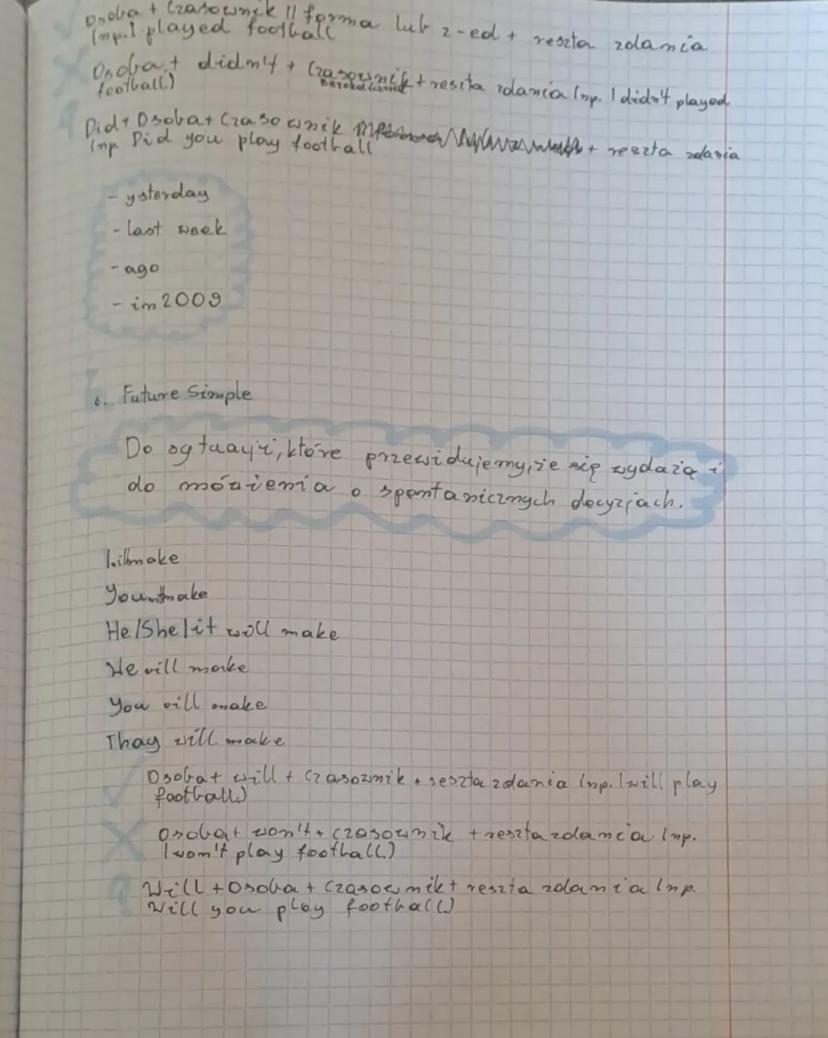 Osoba + Czasownik II forma lub z -ed + reszta zdania
(np. I played football
Osoba + didn't + Czasownik + reszta zdania (np. I didn't played
football)
Did + Osoba + Czasownik + reszta zdania
(np Did you play football
- ysterday
- last week
- ago
- im 2009
6. Future Simple
Do sytuacji, które przewidujemy, że się wydażą i
do mówienia o spontanicznych decyzjach.
I will make
You will make
He/She/it will make
We will make
You will make
Thay will make
Osoba + will + Czasownik + reszta zdania (np. I will play
football)
Osoba + won't + Czasownik + reszta zdania (np.
I won't play football)
Will + Osoba + Czasownik + reszta zdania (np.
Will you play football)